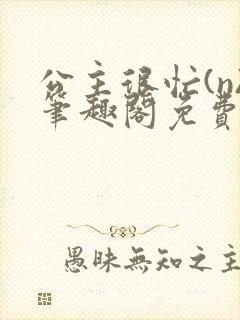 公主很忙(n
筆趣閣免費
愚昧無知之主